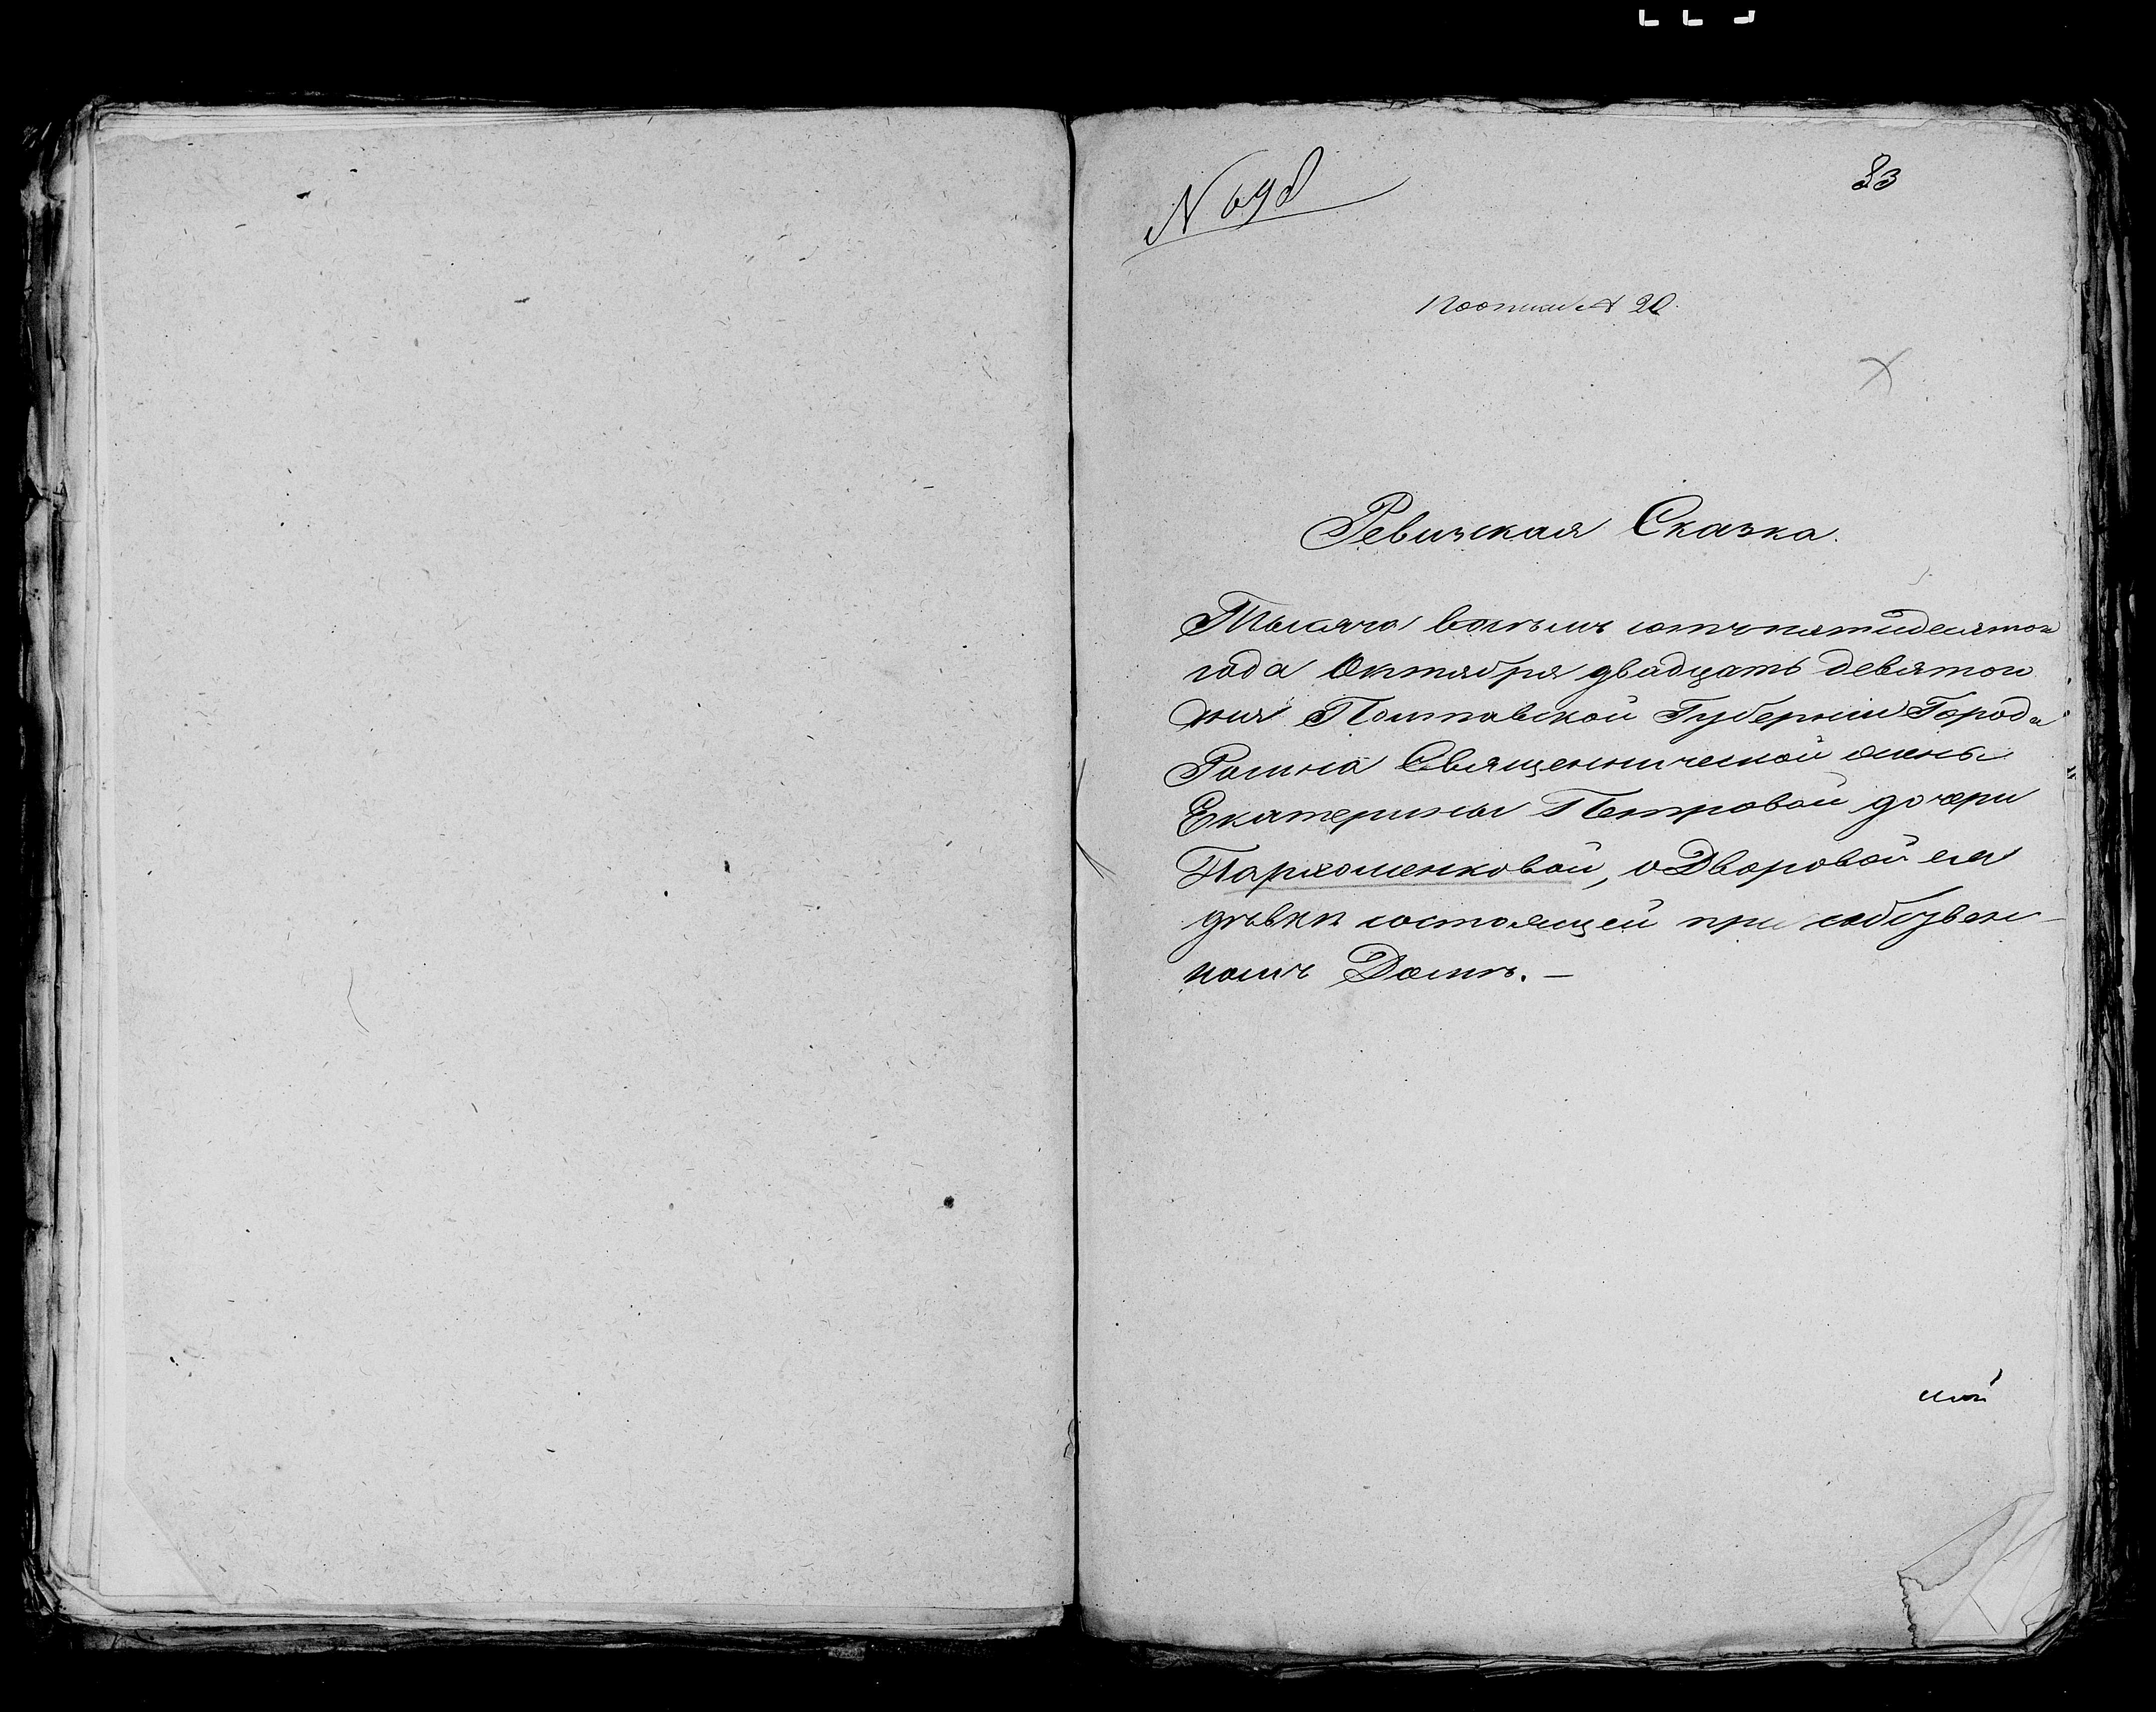 N 698
83
По описи № 20.
Ревизская Сказка.
Тысяча восемь сотъ пятидесятого
года Октября двадцать девятого
дня Полтавской Губернии Города
Ромна Священнической жены
Екатерины Петровой дочери
Пархоменковой, о Дворовой ея
дѣвкѣ состоящей при собствен-
номъ Домѣ. —